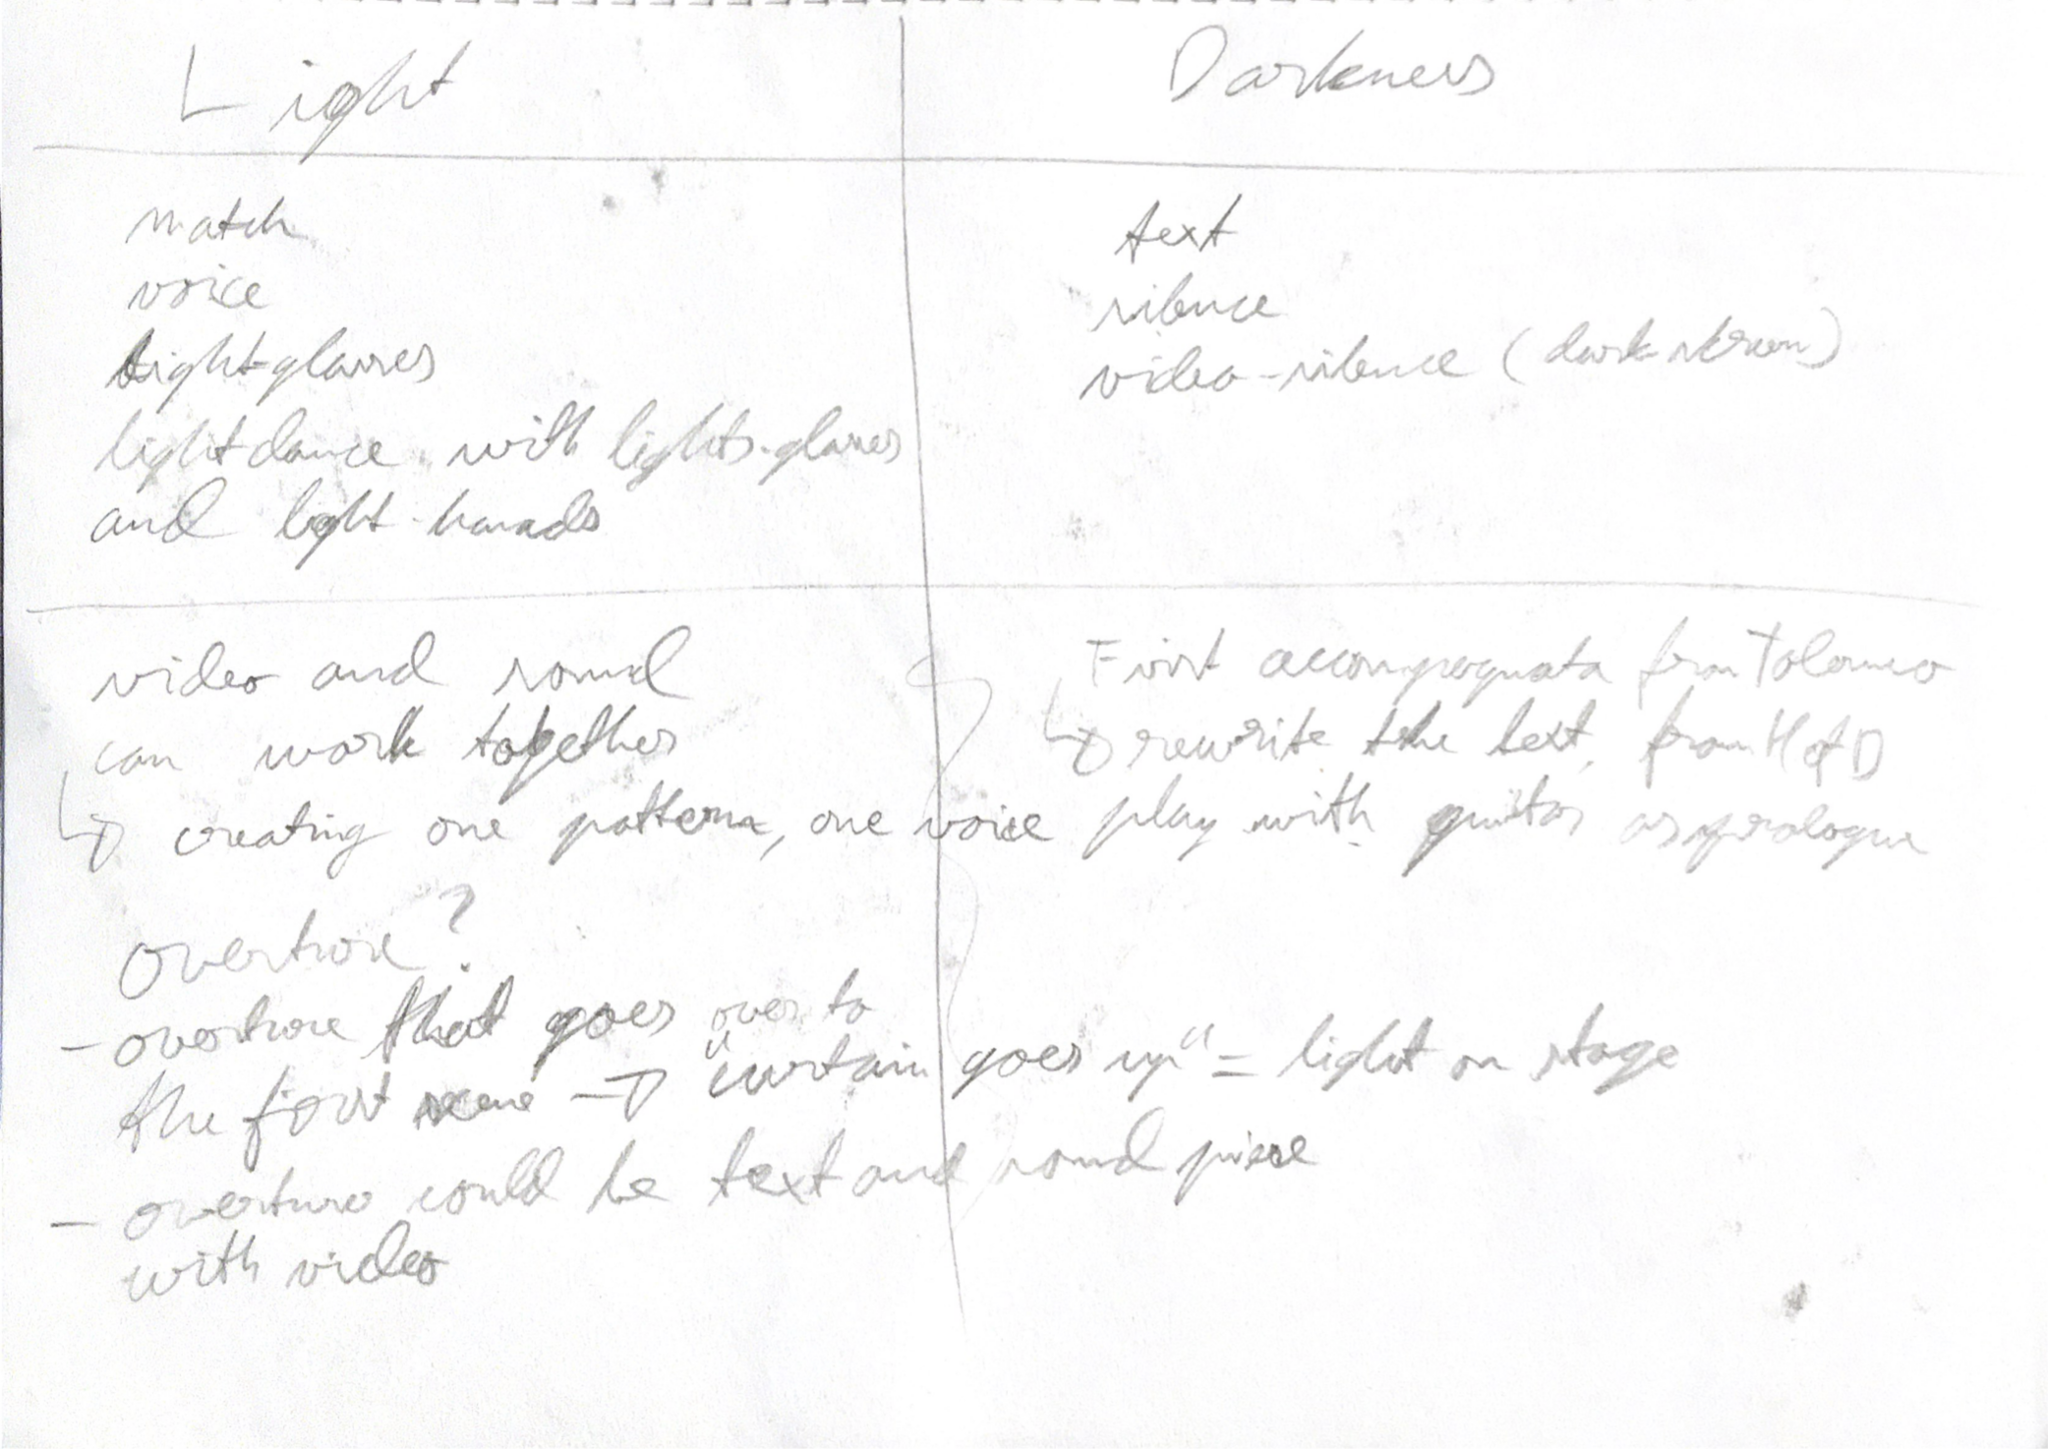 Light
Darkness
match
voice
light-glasses
light dance with lights-glasses
and light-hands
text
silence
video-silence (dark skreen)
video and sound
can work together
creating one pattern, one voice
First accompagnata from Tolomeo
rewrite the text, from H of D
play with guitar as prologue
overture?
- overture that goes over to
the first scene → "curtain goes up" = light on stage
- overture could be text and sound piece
with video